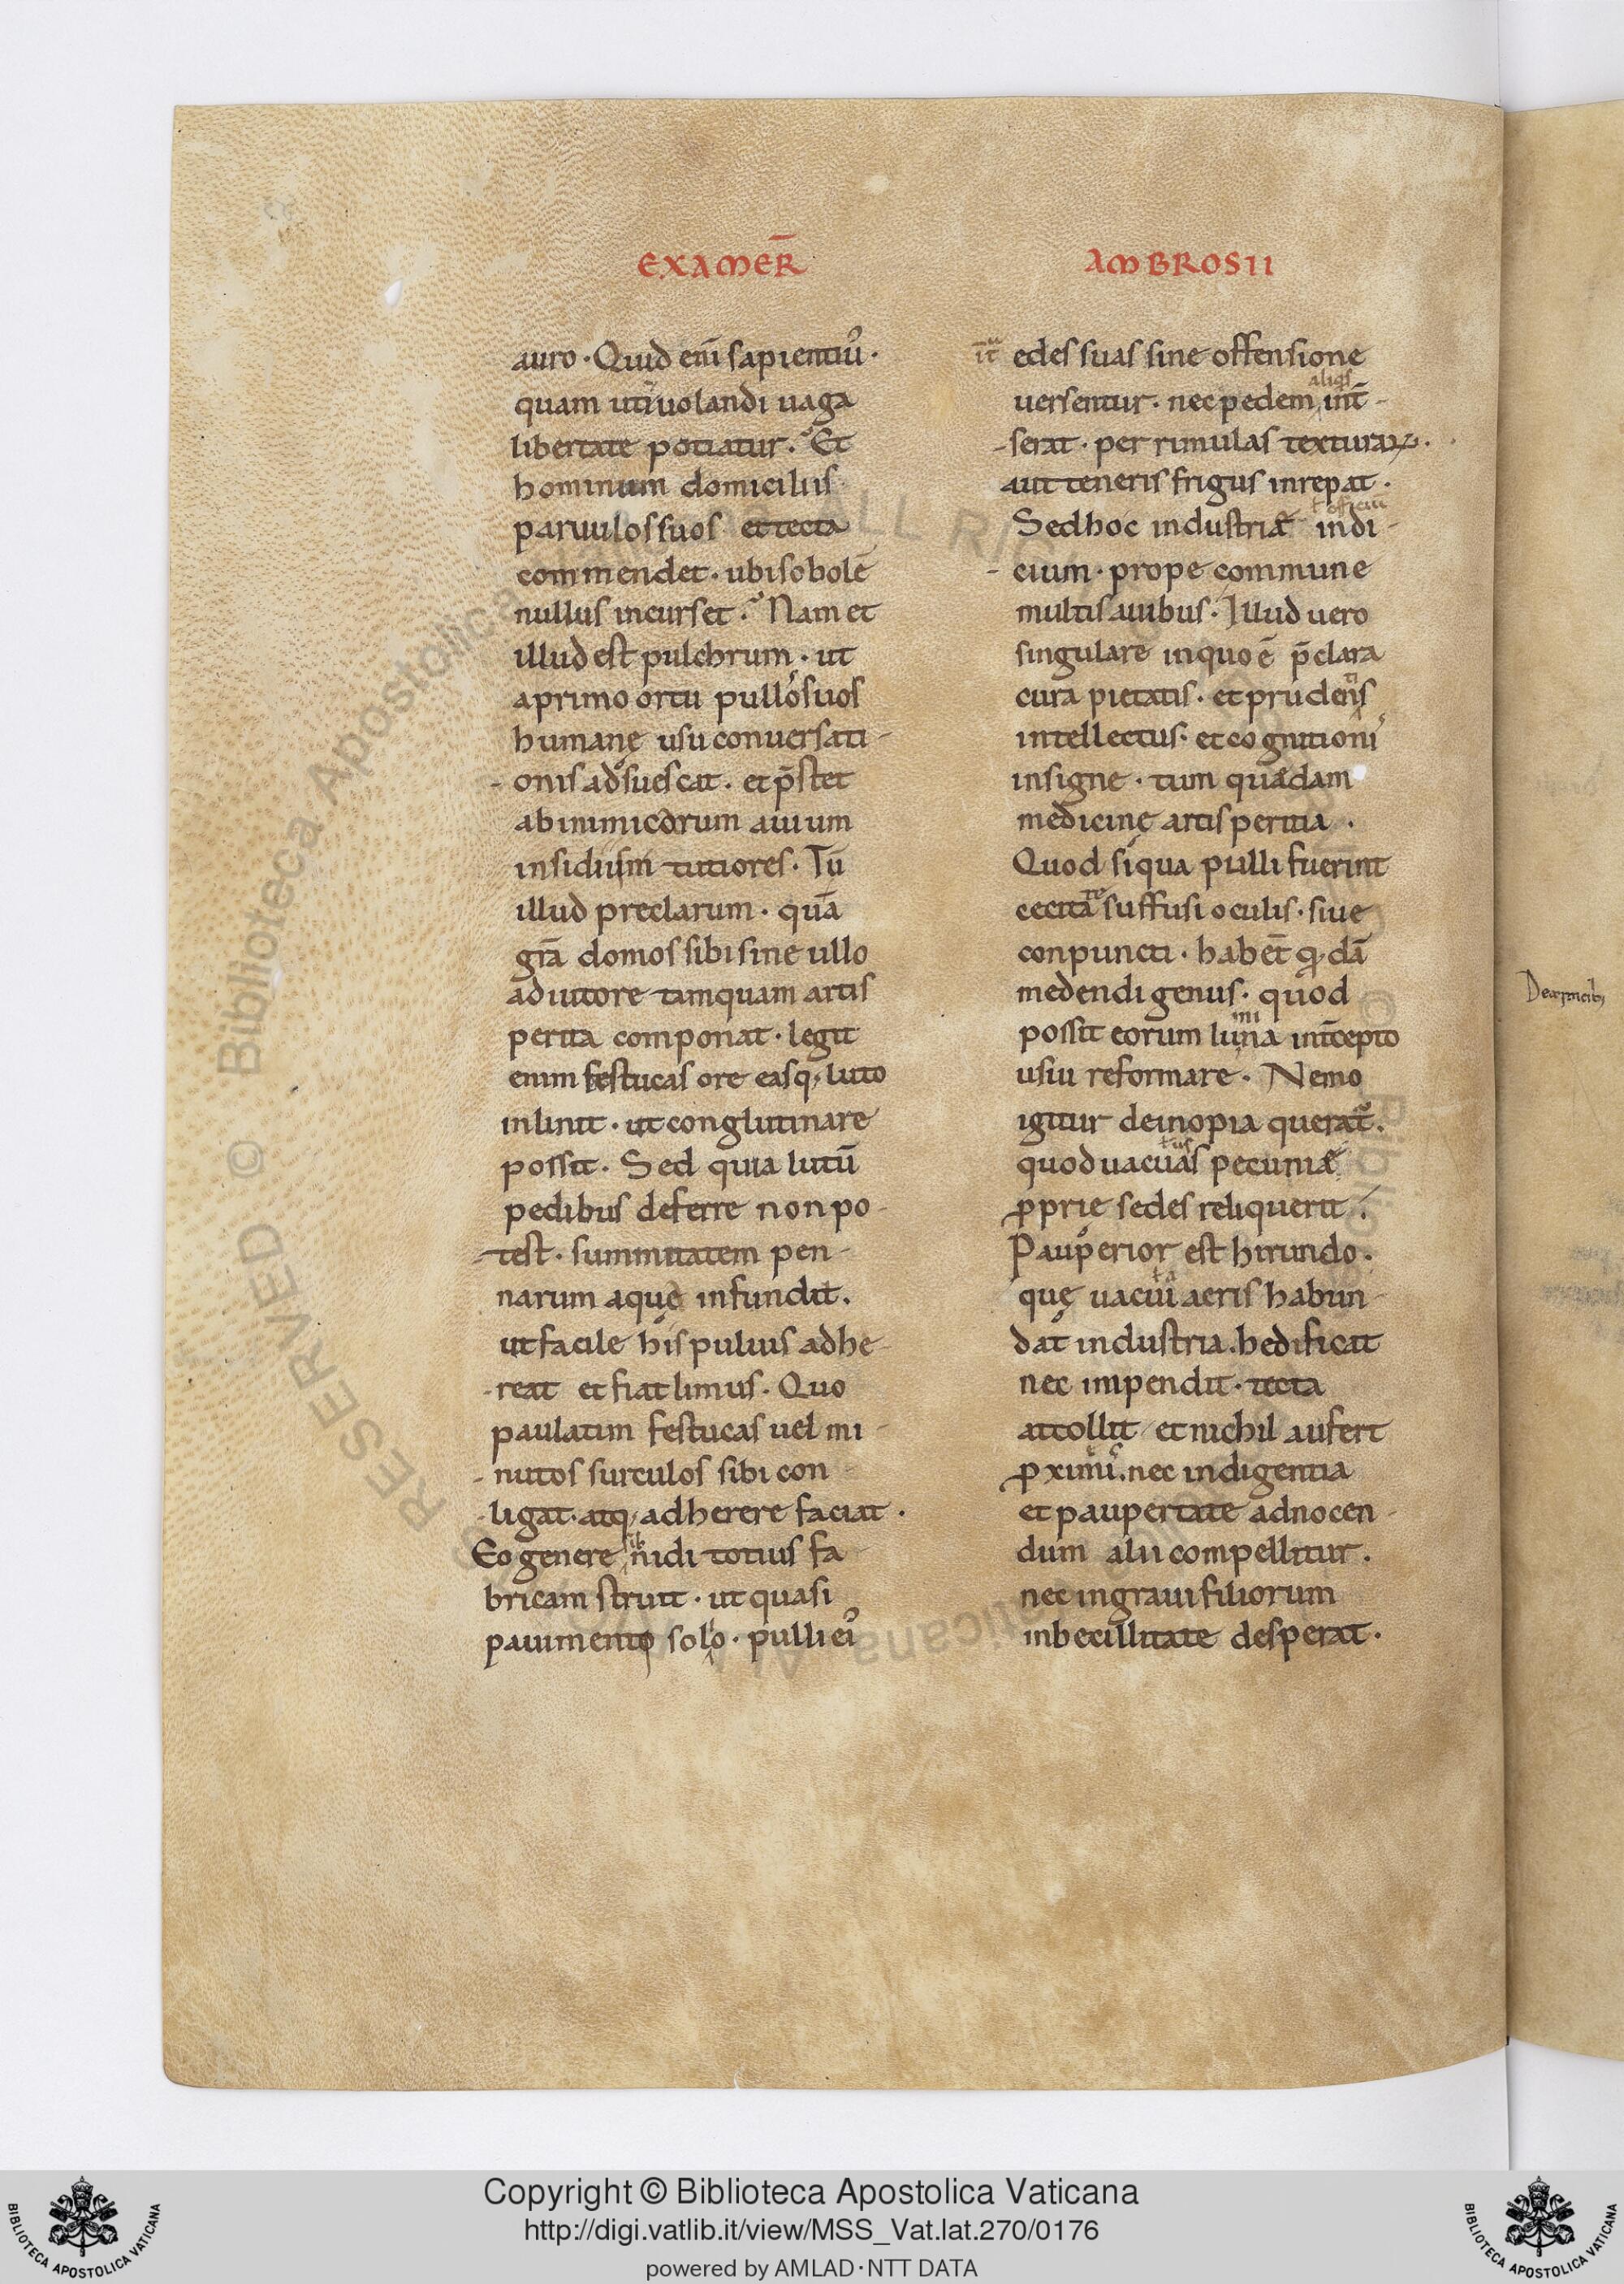 EXAMER̄
AMBROSII
auro · Quid eni̅ sapientiu᷒ ·
quam uti uolandi uaga
libertate potiatur. Et
hominum domiciliis
paruulos suos et tecta
commendet · ubi sobolē
nullus incurset. Nam et
illud est pulchrum · ut
aprimo ortu pullos suos
humanę usu conuersati-
-onis adsuescat. et p̄stet
ab inimicorum auium
insidiis tutiores · Tū
illud preclarum · quā
grā domos sibi sine ullo
adiutore tamquam artis
perita componat · legit
enim festucas ore easq; luto
inlinit · ut conglutinare
possit. Sed quia lutū
pedibus deferre non po-
-test. summitatem pen-
narum aquę infundit.
ut facile his puluis adhe-
-reat et fiat limus. Quo
paulatim festucas uel mi-
-nutos surculos sibi con-
-ligat. atq; adherere faciat.
Eo genere nidi totius fa-
bricam struit · ut quasi
pauimento solo · pulli ei᷒
edes suas sine offensione
aliq̄s
uersentur · nec pedem int̄-
-serat · per rimulas texturaꝝ.
aut teneris frigus inrepat.
ł officiū
Sed hoc industriæ indi-
-cium · prope commune
multis auibus. Illud uero
singulare in quo ē p̄clara
ti
cura pietatis. et prudens
intellectus. et cognitioni
insigne · tum quadam
medicinę artis peritia.
Quod siqua pulli fuerint
re
cecita suffusi oculis · siue
conpuncti · habet̄ q̨dā
medendi genus. quod
mi
possit eorum luna int̄cepto
usui reformare. Nemo
igitur deinopia querat.
ł us
quod uacuas pecuniæ
ꝓprie sedes reliquerit.
Pauperior est hirundo.
ł a
quę uacui aeris habun-
dat industria. hedificat
nec impendit · tecta
attollit et nichil aufert
ꝓximi. nec indigentia
et paupertate adnocen-
dum alii compellitur.
nec ingraui filiorum
inbecillitate desperat.
Copyright © Biblioteca Apostolica Vaticana
http://digi.vatlib.it/view/MSS_Vat.lat.270/0176
powered by AMLAD · NTT DATA
BIBLIOTECA APOSTOLICA VATICANA
BIBLIOTECA APOSTOLICA VATICANA